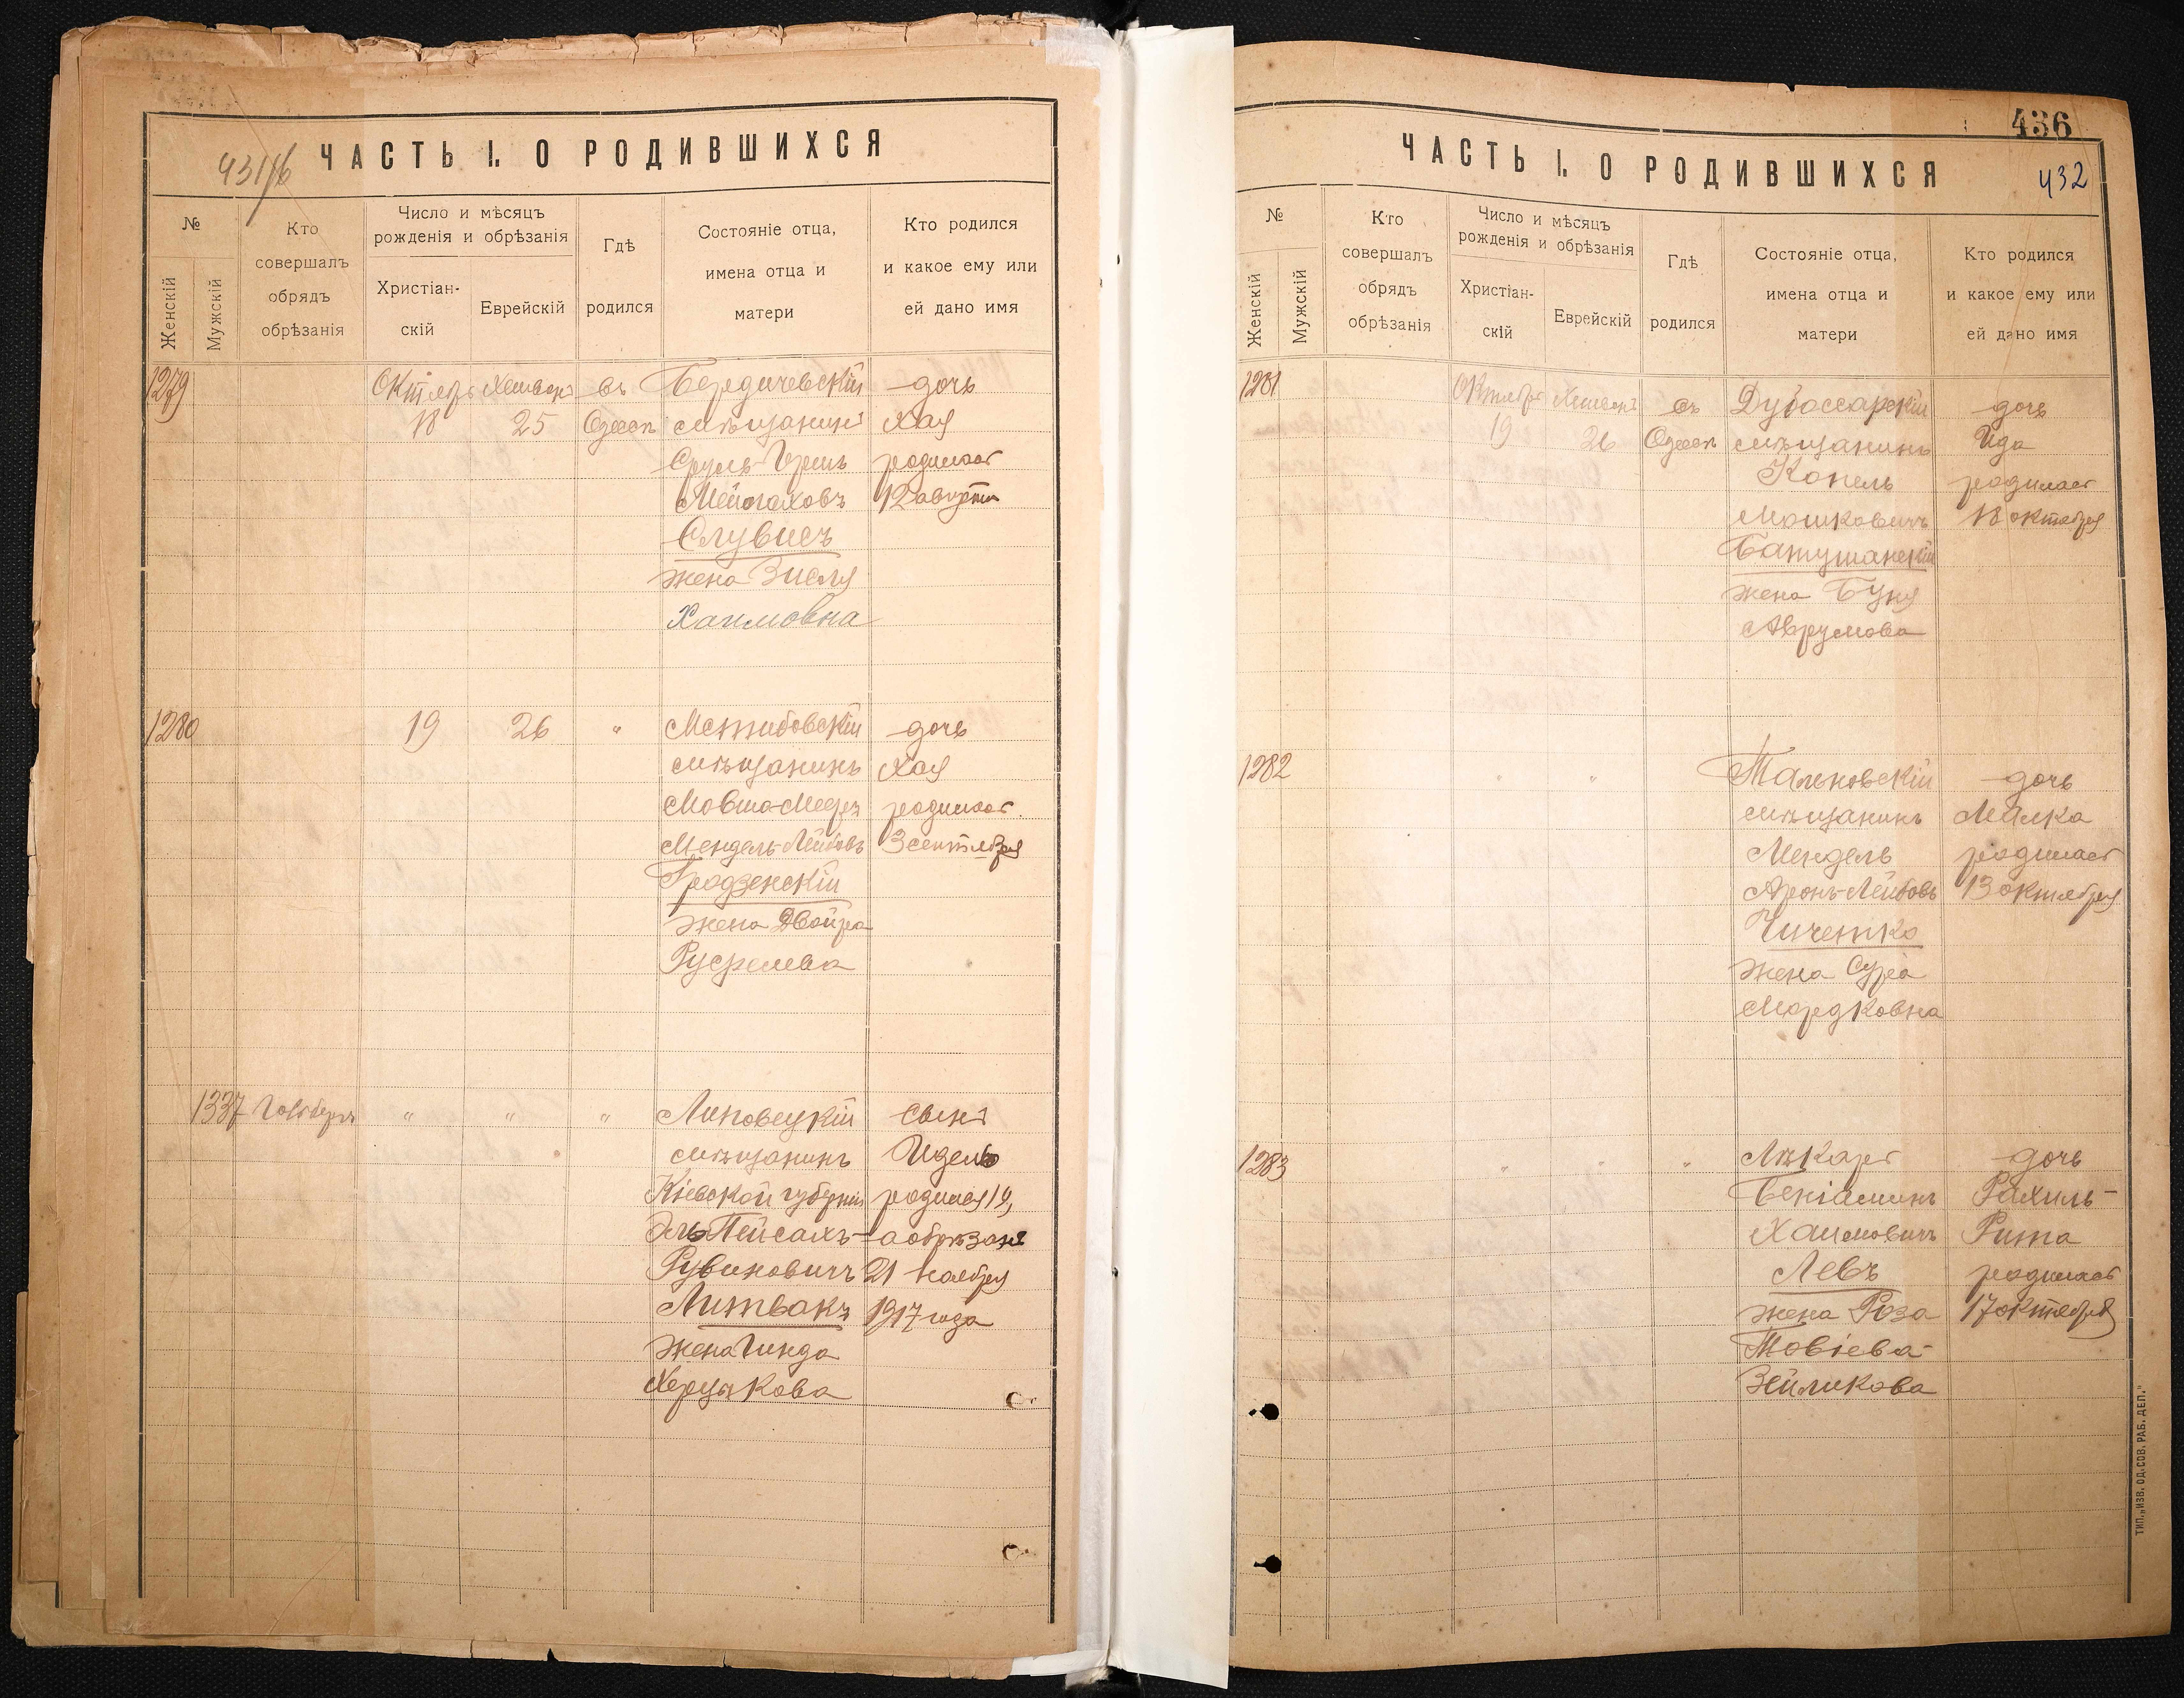 431/б
ЧАСТЬ I. О РОДИВШИХСЯ
№
Женскій
Мужскій
Кто
совершалъ
обрядъ
обрѣзанія
Число и мѣсяцъ
рожденія и обрѣзанія
Христіан-
скій
Еврейскій
Гдѣ
родился
Состояніе отца,
имена отца и
матери
Кто родился
и какое ему или
ей дано имя
1279
Октябрь Хешванъ въ Бердичевскій дочь
18 25 Одессѣ мѣщанинъ Хая
Сруль- родилась
12 августа
жена Зисля
Хаимовна
1280 19 26 " Меджибовскій дочь
мѣщанинъ Хая
Мовша-Мееръ родилась
Мендель-Лейбовъ 3 сентября
Гродзенскій
жена Двойра
1337 " " " Липовецкій сынъ
мѣщанинъ Идель
Кіевской губерніи родился 19,
Эль Пейсахъ- а обрѣзанъ
Рувиновичъ 21 ноября
Литвакъ 1917 года
жена Гинда
436
432
ЧАСТЬ I. О РОДИВШИХСЯ
№
Женскій
Мужскій
Кто
совершалъ
обрядъ
обрѣзанія
Число и мѣсяцъ
рожденія и обрѣзанія
Христіан-
скій
Еврейскій
Гдѣ
родился
Состояніе отца,
имена отца и
матери
Кто родился
и какое ему или
ей дано имя
1281 Октябрь Хешванъ въ Дубоссарскій дочь
19 26 Одессѣ мѣщанинъ Ида
Копель родилась
Мошковичъ 18 октября
Батушанскій
жена Буня
Аврумова
1282 " " Тальновскій дочь
мѣщанинъ Малка
Мендель родилась
Аронъ-Лейбовъ 13 октября
Чичетка
жена Сура
Мордковна
1283 " " " Лѣкарь дочь
Бенiаминъ Рахиль-
Хаимовичъ Рита
Левъ родилась
жена Роза 17 октября
Товіева-
Зейликова
ТИП. „ИЗВ. ОД. СОВ. РАБ. ДЕП."